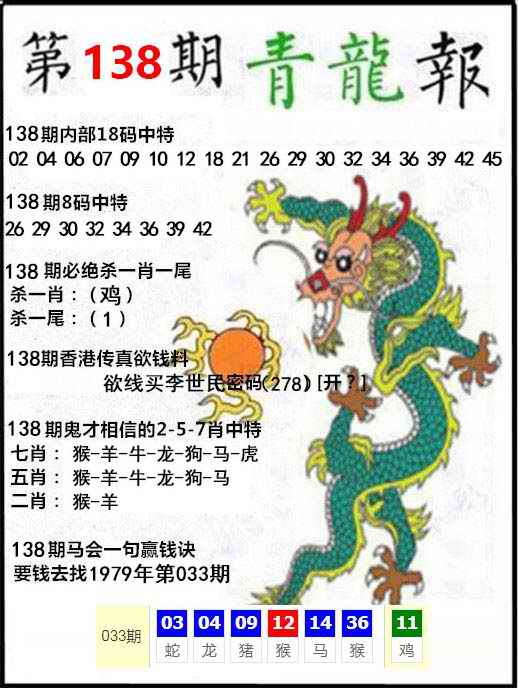 第138期青龍報
138期内部18码中特
02 04 06 07 09 10 12 18 21 26 29 30 32 34 36 39 42 45
138期8码中特
26 29 30 32 34 36 39 42
138期必绝杀一肖一尾
杀一肖：（鸡）
杀一尾：（1）
138期香港传真欲钱料
欲线买李世民密码(278) [开？]
138期鬼才相信的2-5-7肖中特
七肖：猴-羊-牛-龙-狗-马-虎
五肖：猴-羊-牛-龙-狗-马
二肖：猴-羊
138期马会一句赢钱诀
要钱去找1979年第033期
033期 03 04 09 12 14 36 11
蛇 龙 猪 猴 马 猴 鸡